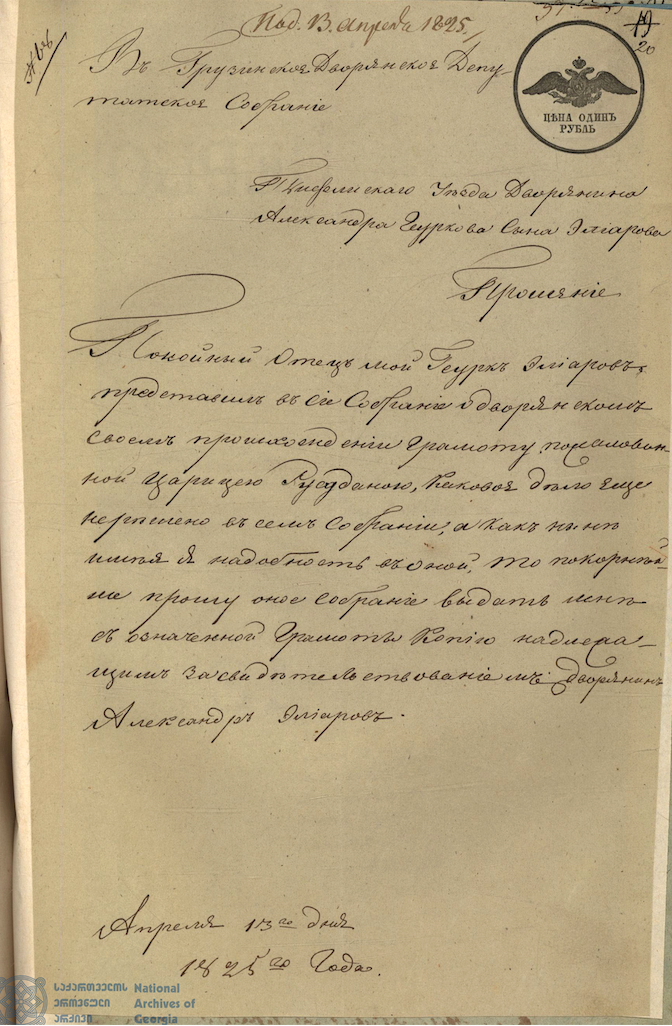 Под. 13. Апреля 1825.
19
20
№ 66
Въ Грузинское Дворянское Депу-
татское Собраніе
ЦѢНА ОДИНЪ
РУБЛЬ
Тифлискаго Уѣзда Дворянина
Александра Геуркова Сына Эліарова
Прошеніе
Покойный Отецъ мой Геуркъ Эліаровъ,
представилъ въ сіе Собраніе о дворянскомъ
своемъ происхожденіи Грамоту пожалован-
ной Царицею Русуданою, Каковое дѣло еще
нерѣшено въ семъ Собраніи, а какъ нынѣ
имѣя я надобность въ оной, то покорнѣй-
ше прошу оное Собраніе выдать мнѣ
съ означенной Грамоты Копію надлежа-
щимъ засвидѣтельствованіемъ. Дворянинъ
Александръ Эліаровъ.
Апреля 13го дня
1825го Года.
საქართველოს National
ეროვნული Archives of
არქივი Georgia